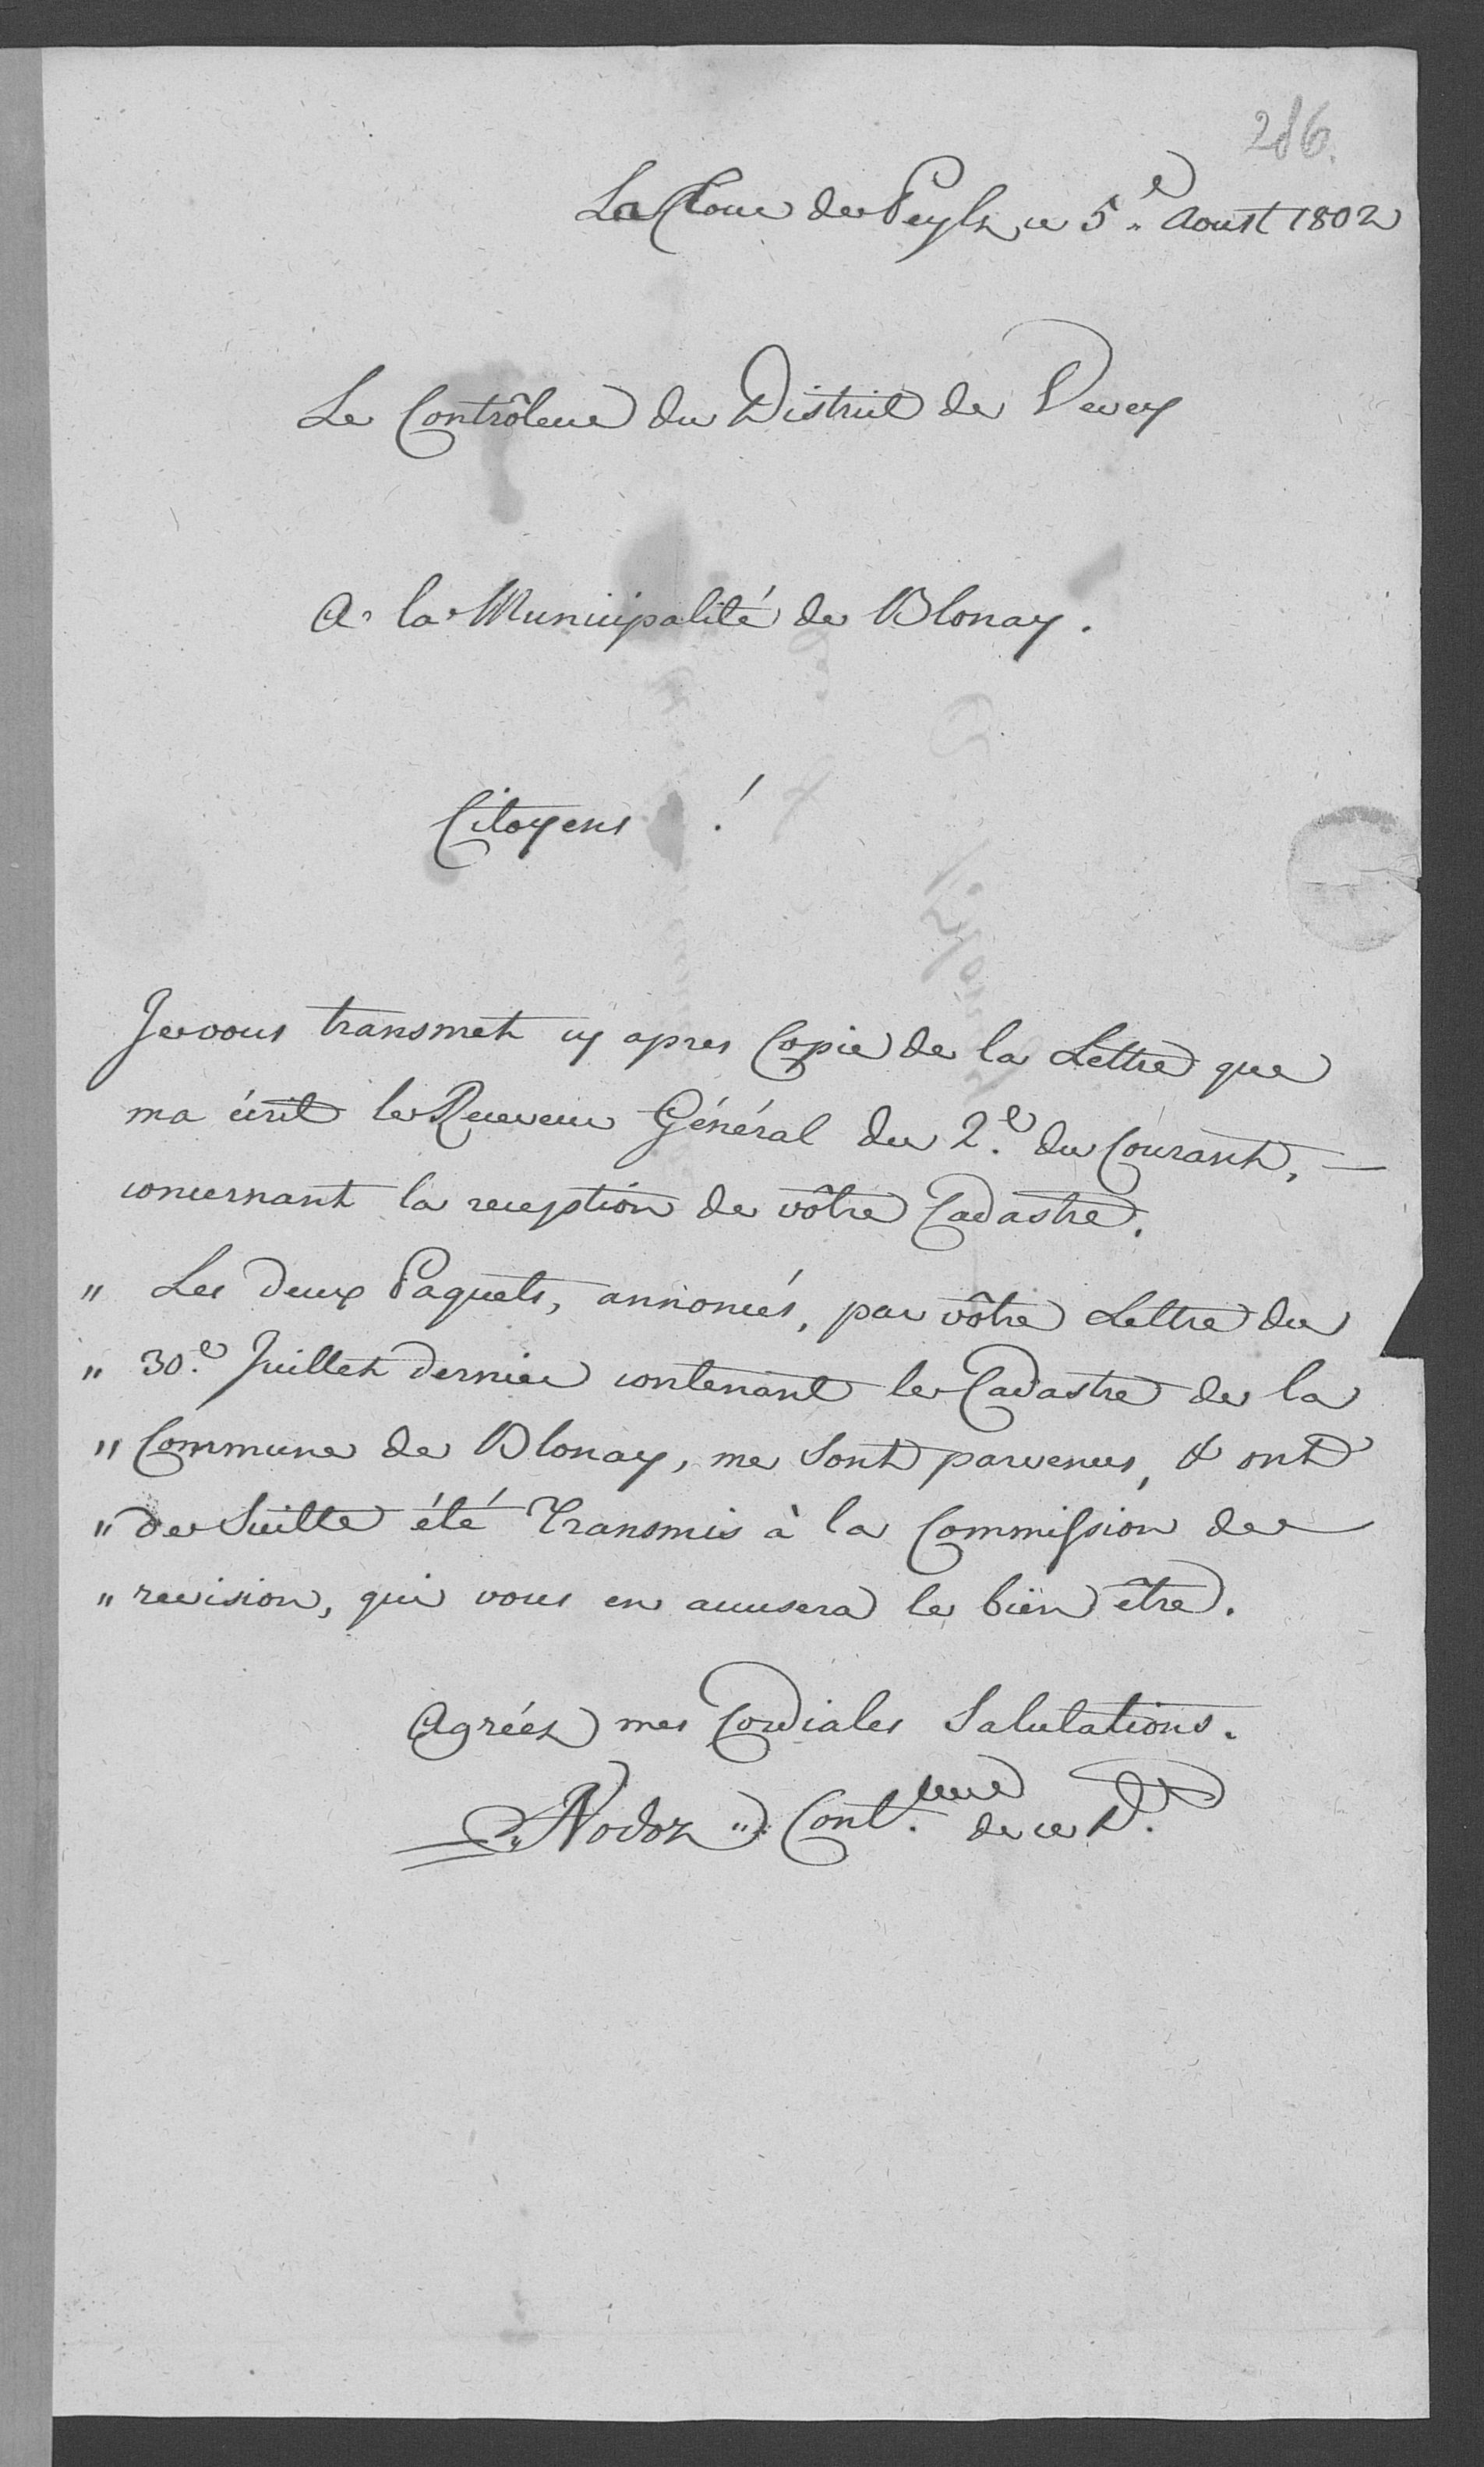 286.
La Tour de Peylz ce 5.e Aoust 1802
Le Contrôleur du District de Vevey
A la Municipalité de Blonay.
Citoyens !
Je vous transmet cy apres Copie de la Lettre que
ma écrit le Receveur Général du 2.e du Courant, —
concernant la reception de vôtre Cadastre.
" Les deux Paquets, annoncés, par vôtre Lettre du
" 30.e Juillet dernier contenant le Cadastre de la
" Commune de Blonay, me sont parvenus, & ont
" de Suitte été Transmis à la Commission de
" revision, qui vous en accusera le bien être.
Agréez mes Cordiales Salutations.
Nodoz Cont.leur de ce D.